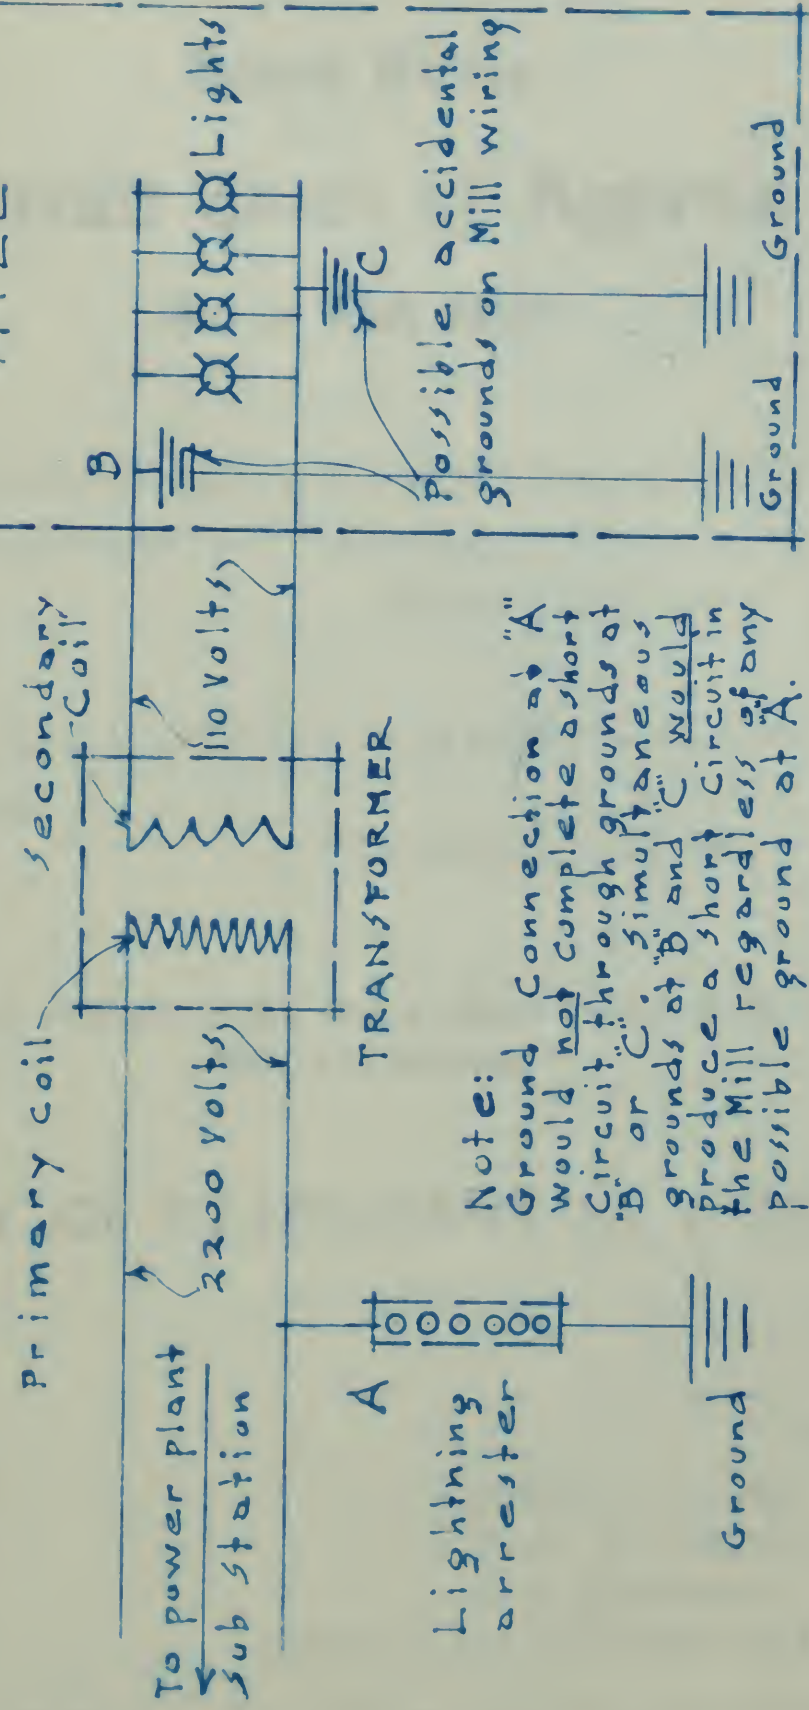 Primary coil
secondary
Coil
To power plant
sub station
2200 volts
110 volts
B
Lights
A
Lightning
arrester
Ground
TRANSFORMER
C
Possible accidental
grounds on Mill wiring
Ground
Ground
Note:
Ground Connection at "A"
would not complete a short
circuit through grounds at
"B" or "C". simultaneous
grounds at "B" and "C" would
produce a short circuit in
the Mill regardless of any
possible ground at "A".